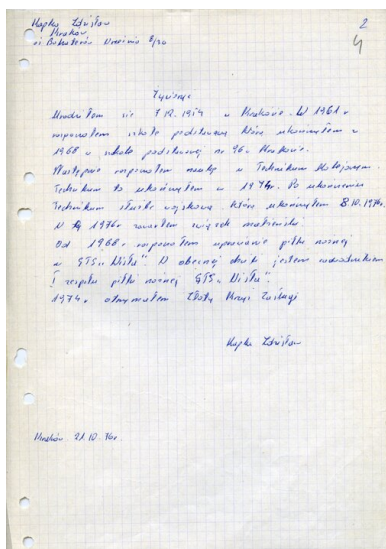 Kapka Zdzisław
Kraków
ul Bohaterów Września 8/30
2
4
Życiorys
Urodziłem się 7.12.1954 w Krakowie. W 1961 r
rozpocząłem szkołę podstawową którą ukończyłem w
1968 w szkole podstawowej nr 96 w Krakowie.
Następnie rozpocząłem naukę w Technikum Kolejowym.
Technikum to ukończyłem w 1974r. Po ukończeniu
Technikum służba wojskowa którą ukończyłem 8.10.1976r.
W 1976r zawarłem związek małżeński.
Od 1968 r rozpocząłem uprawianie piłki nożnej
w GTS "Wisła". W obecnej chwili jestem zawodnikiem
I zespołu piłki nożnej GTS "Wisła".
1974r otrzymałem Złoty Krzyż Zasługi
Kapka Zdzisław
Kraków 21.10.76r.